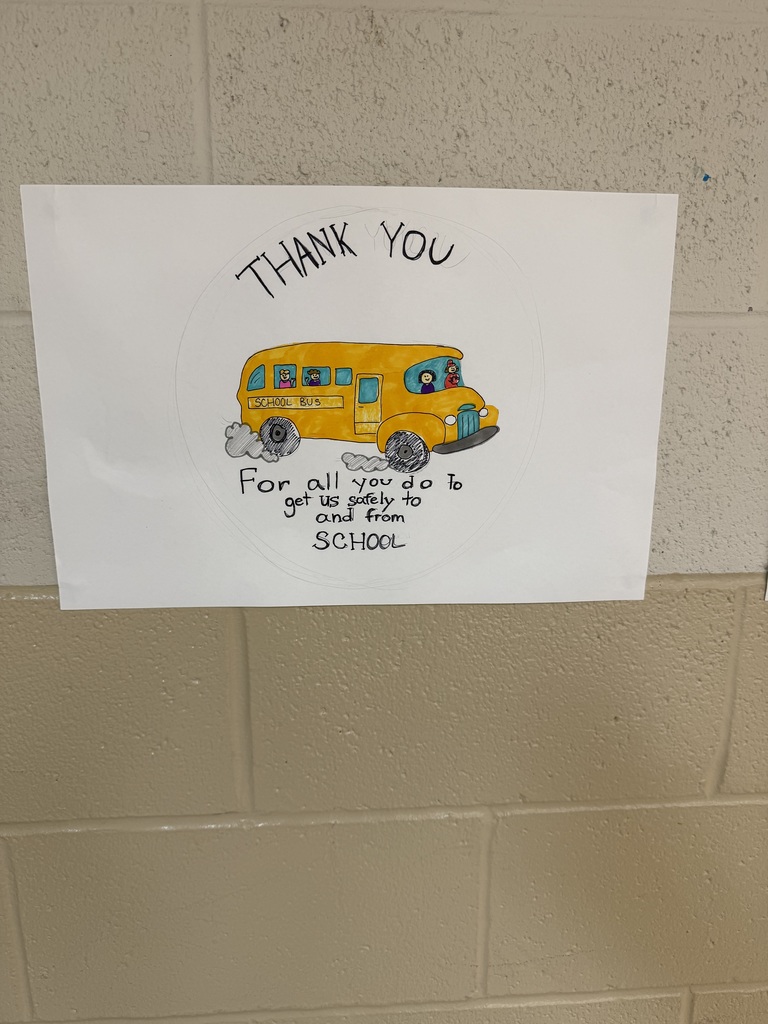 THANK YOU
SCHOOL BUS
For all you do to
get us safely to
and from
SCHOOL